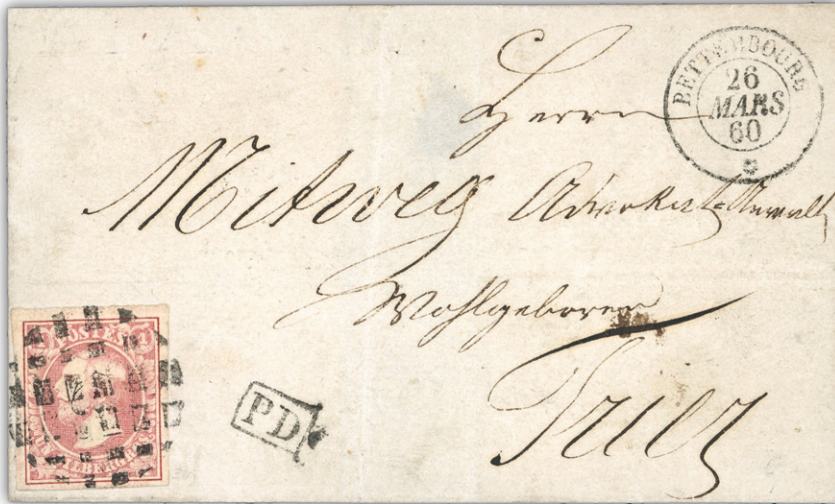 BETTEMBOURG
26
MARS
60
Herrn
Mitweg Advokat=Anwalt
Wohlgeboren
Trier
POSTES
PD
SILBERGROS